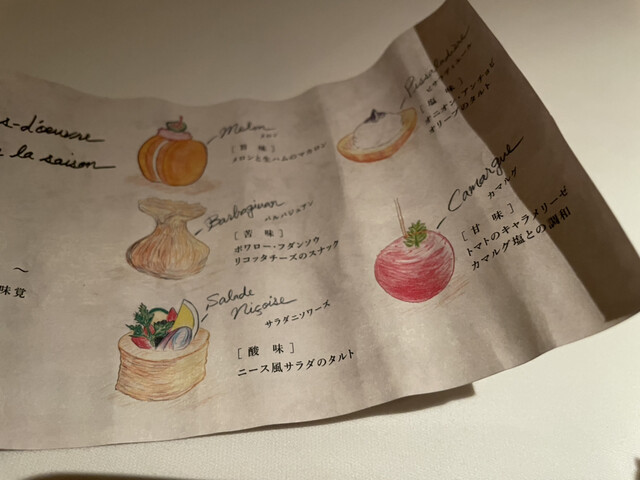 s-d'oeuvre
la saison
～
味覚
Melon
メロン
[旨 味]
メロンと生ハムのマカロン
Barbagiuan
バルバジュアン
[苦 味]
ポワロー・フダンソウ
リコッタチーズのスナック
Salade
Niçoise
サラダニソワーズ
[酸 味]
ニース風サラダのタルト
Pissaladière
[塩 味]
オニオン・アンチョビ
オリーブのタルト
Camargue
カマルグ
[甘 味]
トマトのキャラメリーゼ
カマルグ塩との調和